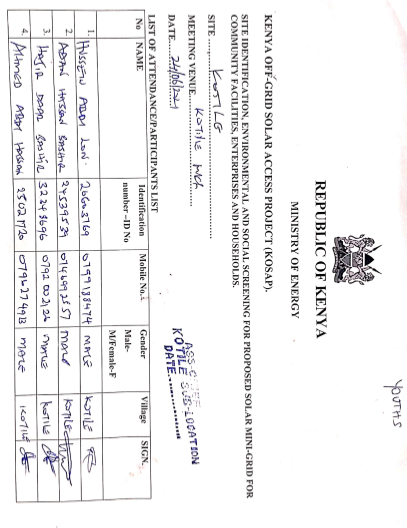 YOUTHS
REPUBLIC OF KENYA
MINISTRY OF ENERGY
KENYA OFF-GRID SOLAR ACCESS PROJECT (KOSAP).
SITE IDENTIFICATION, ENVIRONMENTAL AND SOCIAL SCREENING FOR PROPOSED SOLAR MINI-GRID FOR
COMMUNITY FACILITIES, ENTERPRISES AND HOUSEHOLDS.
SITE KOTILE
MEETING VENUE KOTILE
DATE 24/06/2021
ASS. CHIEF
KOTILE SUB-LOCATION
DATE
LIST OF ATTENDANCE/PARTICIPANTS LIST
No NAME Identification number -ID No Mobile No. Gender Male-M/Female-F Village SIGN.
1. HUSSEIN ABDI 20603769 0799188474 MALE KOTILE
2. ADAN HASSAN BASHIR 24539539 MALE KOTILE
3. BASHIR 32243696 0792002126 MALE KOTILE
4. AHMED ABDI HASSAN 25021720 0796274913 MALE KOTILE